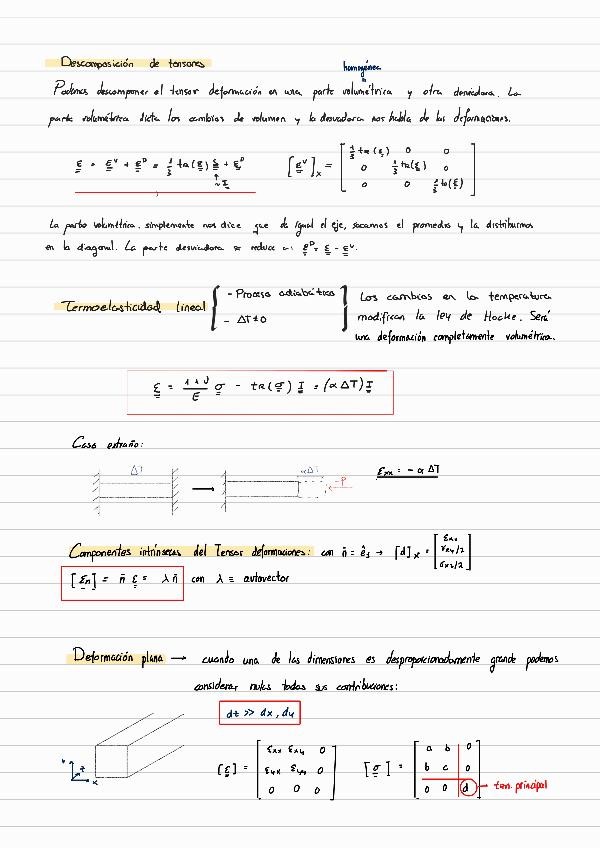 Descomposición de tensores
homogénea
Podemos descomponer el tensor deformación en una parte volumétrica y otra desviadora. La
parte volumétrica dicta los cambios de volumen y la desviadora nos habla de las deformaciones.
ε = ε^V + ε^D = 1/3 tr(ε) δ + ε^D   [ε^V]_x = [1/3 tr(ε) 0 0; 0 1/3 tr(ε) 0; 0 0 1/3 tr(ε)]
~ I
La parte volumétrica, simplemente nos dice que da igual el eje, sacamos el promedio y la distribuimos
en la diagonal. La parte desviadora se reduce a: ε^D = ε - ε^V.
Termoelasticidad lineal { - Proceso adiabático
- ΔT ≠ 0 }
Los cambios en la temperatura
modifican la ley de Hooke. Será
una deformación completamente volumétrica.
ε = (1+ν)/E σ - tr(σ) I = (α ΔT) I
Caso extraño:
ΔT → αΔT -P   ε_xx = - α ΔT
Componentes intrínsecas del Tensor deformaciones: con n̄ = ê_1 → [d]_x = [ε_xx; γ_xy/2; σ_xz/2]
[ε_n] = n̄ ε = λ n̄ con λ ≡ autovector
Deformación plana → cuando una de las dimensiones es desproporcionadamente grande podemos
considerar nulas todas sus contribuciones:
dz >> dx, dy
y z x   [ε] = [ε_xx ε_xy 0; ε_yx ε_yy 0; 0 0 0]   [σ] = [a b 0; b c 0; 0 0 d] → ten. principal